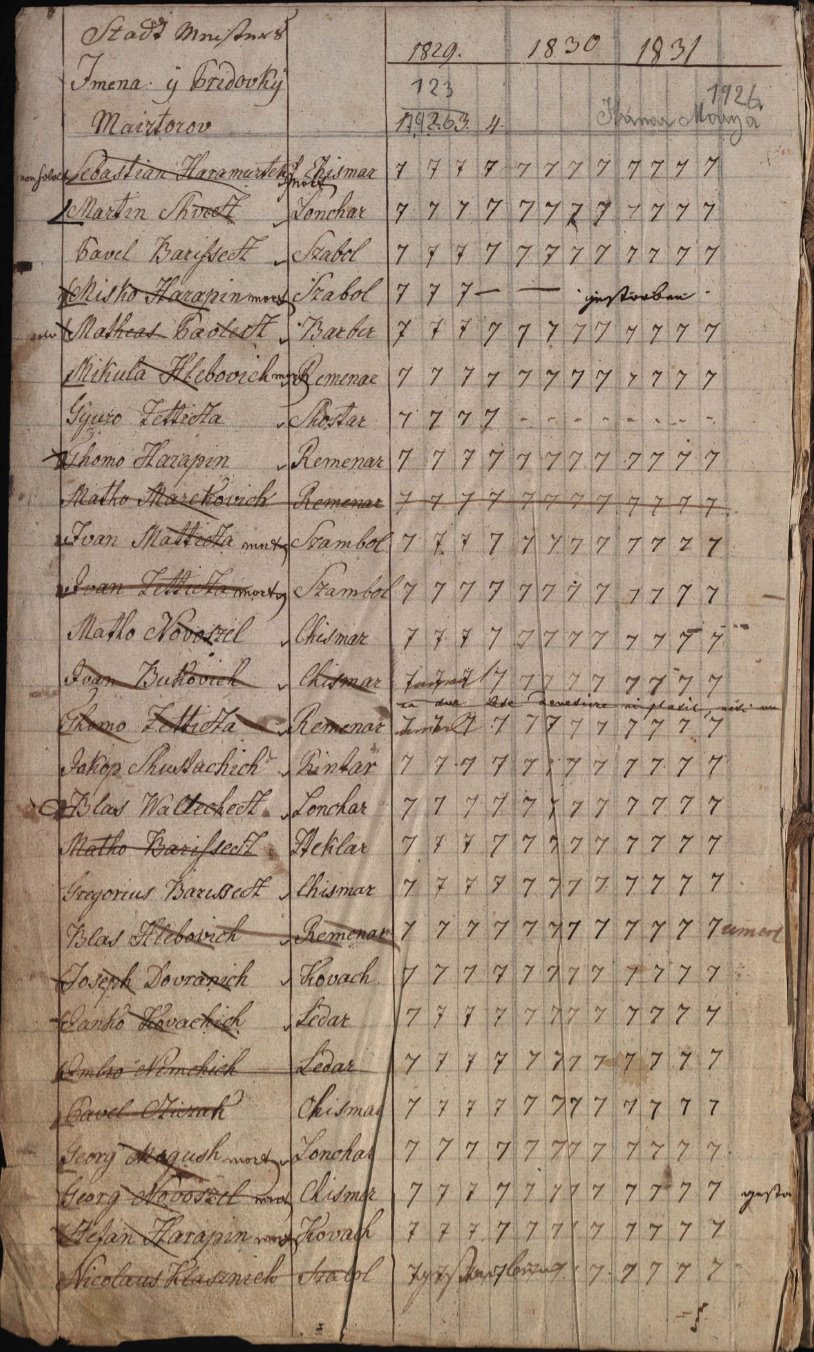 Stadt
1829. 1830 1831
Imena y Pridovky
123
1926.
Maiztorov
1 2 3 4
Sebastian Haramustek mort Chismar 7 7 7 7 7 7 7 7 7 7 7 7
Martin Shvest Lonchar 7 7 7 7 7 7 7 7 7 7 7 7
Pavel Barissect Szabol 7 7 7 7 7 7 7 7 7 7 7 7
Misko Harapin mort Szabol 7 7 7 — — gestorben
Matheas Pavlect Barber 7 7 7 7 7 7 7 7 7 7 7 7
Mikula Hlebovich mort Remenar 7 7 7 7 7 7 7 7 7 7 7 7
Gyuro Zettitta Shostar 7 7 7 7 - - - - - - - -
Thomo Harapin Remenar 7 7 7 7 7 7 7 7 7 7 7 7
Matho Marekovich Remenar 7 7 7 7 7 7 7 7 7 7 7 7
Ivan Mattitta mort Szambol 7 7 7 7 7 7 7 7 7 7 7 7
Ivan Zettitta mort Szambol 7 7 7 7 7 7 7 7 7 7 7 7
Matho Novoszel Chismar 7 7 7 7 7 7 7 7 7 7 7 7
Ivan Bukovich Chismar 7 7 7 7 7 7 7 7 7 7 7 7
Thomo Zettitta Remenar 7 7 7 7 7 7 7 7 7 7 7 7
Jakop Shustachich Pintar 7 7 7 7 7 7 7 7 7 7 7 7
Blas Waltechect Lonchar 7 7 7 7 7 7 7 7 7 7 7 7
Matho Barissect Steklar 7 7 7 7 7 7 7 7 7 7 7 7
Gregorius Barissect Chismar 7 7 7 7 7 7 7 7 7 7 7 7
Blas Hlebovich Remenar 7 7 7 7 7 7 7 7 7 7 7 7 umerl
Joseph Dovranich Kovach 7 7 7 7 7 7 7 7 7 7 7 7
Janko Kovachich Ledar 7 7 7 7 7 7 7 7 7 7 7 7
Imbro Nemchich Ledar 7 7 7 7 7 7 7 7 7 7 7 7
Pavel Chismar 7 7 7 7 7 7 7 7 7 7 7 7
Georg Magush mort Lonchar 7 7 7 7 7 7 7 7 7 7 7 7
Georg Novoszel mort Chismar 7 7 7 7 7 7 7 7 7 7 7 7
Stefan Harapin mort Kovach 7 7 7 7 7 7 7 7 7 7 7 7
Nicolaus Szabol 7 7 7 7 7 7 7